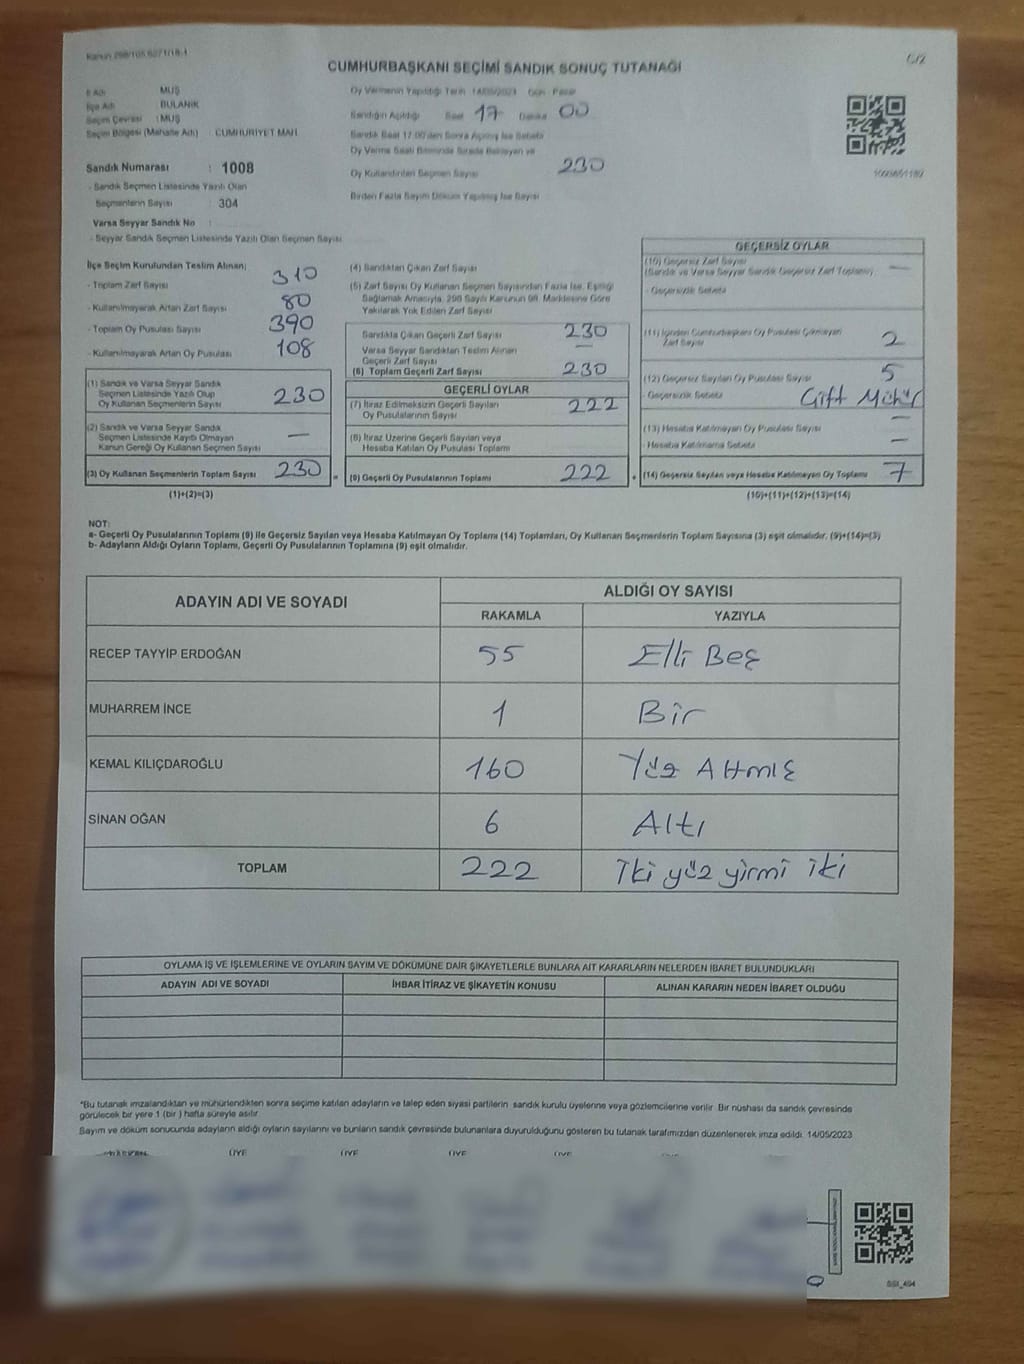 Kanun 298/105 6271/18-1
C/2
CUMHURBAŞKANI SEÇİMİ SANDIK SONUÇ TUTANAĞI
İl Adı MUŞ
İlçe Adı BULANIK
Seçim Çevresi : MUŞ
Seçim Bölgesi (Mahalle Adı) : CUMHURİYET MAH.
Oy Vermenin Yapıldığı Tarih 14/05/2023 Gün Pazar
Sandığın Açıldığı Saat 17 Dakika 00
Sandık Saat 17:00'den Sonra Açılmış İse Sebebi
Oy Verme Saati Bitiminde Sırada Bekleyen ve
Oy Kullandırılan Seçmen Sayısı 230
Birden Fazla Sayım Döküm Yapılmış İse Sayısı
Sandık Numarası : 1008
- Sandık Seçmen Listesinde Yazılı Olan
Seçmenlerin Sayısı : 304
Varsa Seyyar Sandık No :
- Seyyar Sandık Seçmen Listesinde Yazılı Olan Seçmen Sayısı
İlçe Seçim Kurulundan Teslim Alınan;
- Toplam Zarf Sayısı 310
- Kullanılmayarak Artan Zarf Sayısı 80
- Toplam Oy Pusulası Sayısı 390
- Kullanılmayarak Artan Oy Pusulası 108
(1) Sandık ve Varsa Seyyar Sandık
Seçmen Listesinde Yazılı Olup
Oy Kullanan Seçmenlerin Sayısı 230
(2) Sandık ve Varsa Seyyar Sandık
Seçmen Listesinde Kayıtlı Olmayan
Kanun Gereği Oy Kullanan Seçmen Sayısı —
(3) Oy Kullanan Seçmenlerin Toplam Sayısı 230
(1)+(2)=(3)
(4) Sandıktan Çıkan Zarf Sayısı
(5) Zarf Sayısı Oy Kullanan Seçmen Sayısından Fazla İse, Eşitliği
Sağlamak Amacıyla, 298 Sayılı Kanunun 98. Maddesine Göre
Yakılarak Yok Edilen Zarf Sayısı
Sandıkta Çıkan Geçerli Zarf Sayısı 230
Varsa Seyyar Sandıktan Teslim Alınan
Geçerli Zarf Sayısı —
(6) Toplam Geçerli Zarf Sayısı 230
GEÇERLİ OYLAR
(7) İtiraz Edilmeksizin Geçerli Sayılan
Oy Pusulalarının Sayısı 222
(8) İtiraz Üzerine Geçerli Sayılan veya
Hesaba Katılan Oy Pusulası Toplamı
(9) Geçerli Oy Pusulalarının Toplamı 222
GEÇERSİZ OYLAR
(10) Geçersiz Zarf Sayısı
(Sandık ve Varsa Seyyar Sandık Geçersiz Zarf Toplamı) —
- Geçersizlik Sebebi
(11) İçinden Cumhurbaşkanı Oy Pusulası Çıkmayan
Zarf Sayısı 2
(12) Geçersiz Sayılan Oy Pusulası Sayısı 5
- Geçersizlik Sebebi Çift Mühür
(13) Hesaba Katılmayan Oy Pusulası Sayısı —
- Hesaba Katılmama Sebebi —
(14) Geçersiz Sayılan veya Hesaba Katılmayan Oy Toplamı 7
(10)+(11)+(12)+(13)=(14)
NOT:
a- Geçerli Oy Pusulalarının Toplamı (9) ile Geçersiz Sayılan veya Hesaba Katılmayan Oy Toplamı (14) Toplamları, Oy Kullanan Seçmenlerin Toplam Sayısına (3) eşit olmalıdır. (9)+(14)=(3)
b- Adayların Aldığı Oyların Toplamı, Geçerli Oy Pusulalarının Toplamına (9) eşit olmalıdır.
ADAYIN ADI VE SOYADI
ALDIĞI OY SAYISI
RAKAMLA YAZIYLA
RECEP TAYYİP ERDOĞAN 55 Elli Beş
MUHARREM İNCE 1 Bir
KEMAL KILIÇDAROĞLU 160 Yüz Altmış
SİNAN OĞAN 6 Altı
TOPLAM 222 İki yüz yirmi iki
OYLAMA İŞ VE İŞLEMLERİNE VE OYLARIN SAYIM VE DÖKÜMÜNE DAİR ŞİKAYETLERLE BUNLARA AİT KARARLARIN NELERDEN İBARET BULUNDUKLARI
ADAYIN ADI VE SOYADI İHBAR İTİRAZ VE ŞİKAYETİN KONUSU ALINAN KARARIN NEDEN İBARET OLDUĞU
*Bu tutanak imzalandıktan ve mühürlendikten sonra seçime katılan adayların ve talep eden siyasi partilerin sandık kurulu üyelerine veya gözlemcilerine verilir. Bir nüshası da sandık çevresinde
görülecek bir yere 1 (bir) hafta süreyle asılır.
Sayım ve döküm sonucunda adayların aldığı oyların sayılarını ve bunların sandık çevresinde bulunanlara duyurulduğunu gösteren bu tutanak tarafımızdan düzenlenerek imza edildi. 14/05/2023
BAŞKAN ÜYE ÜYE ÜYE ÜYE